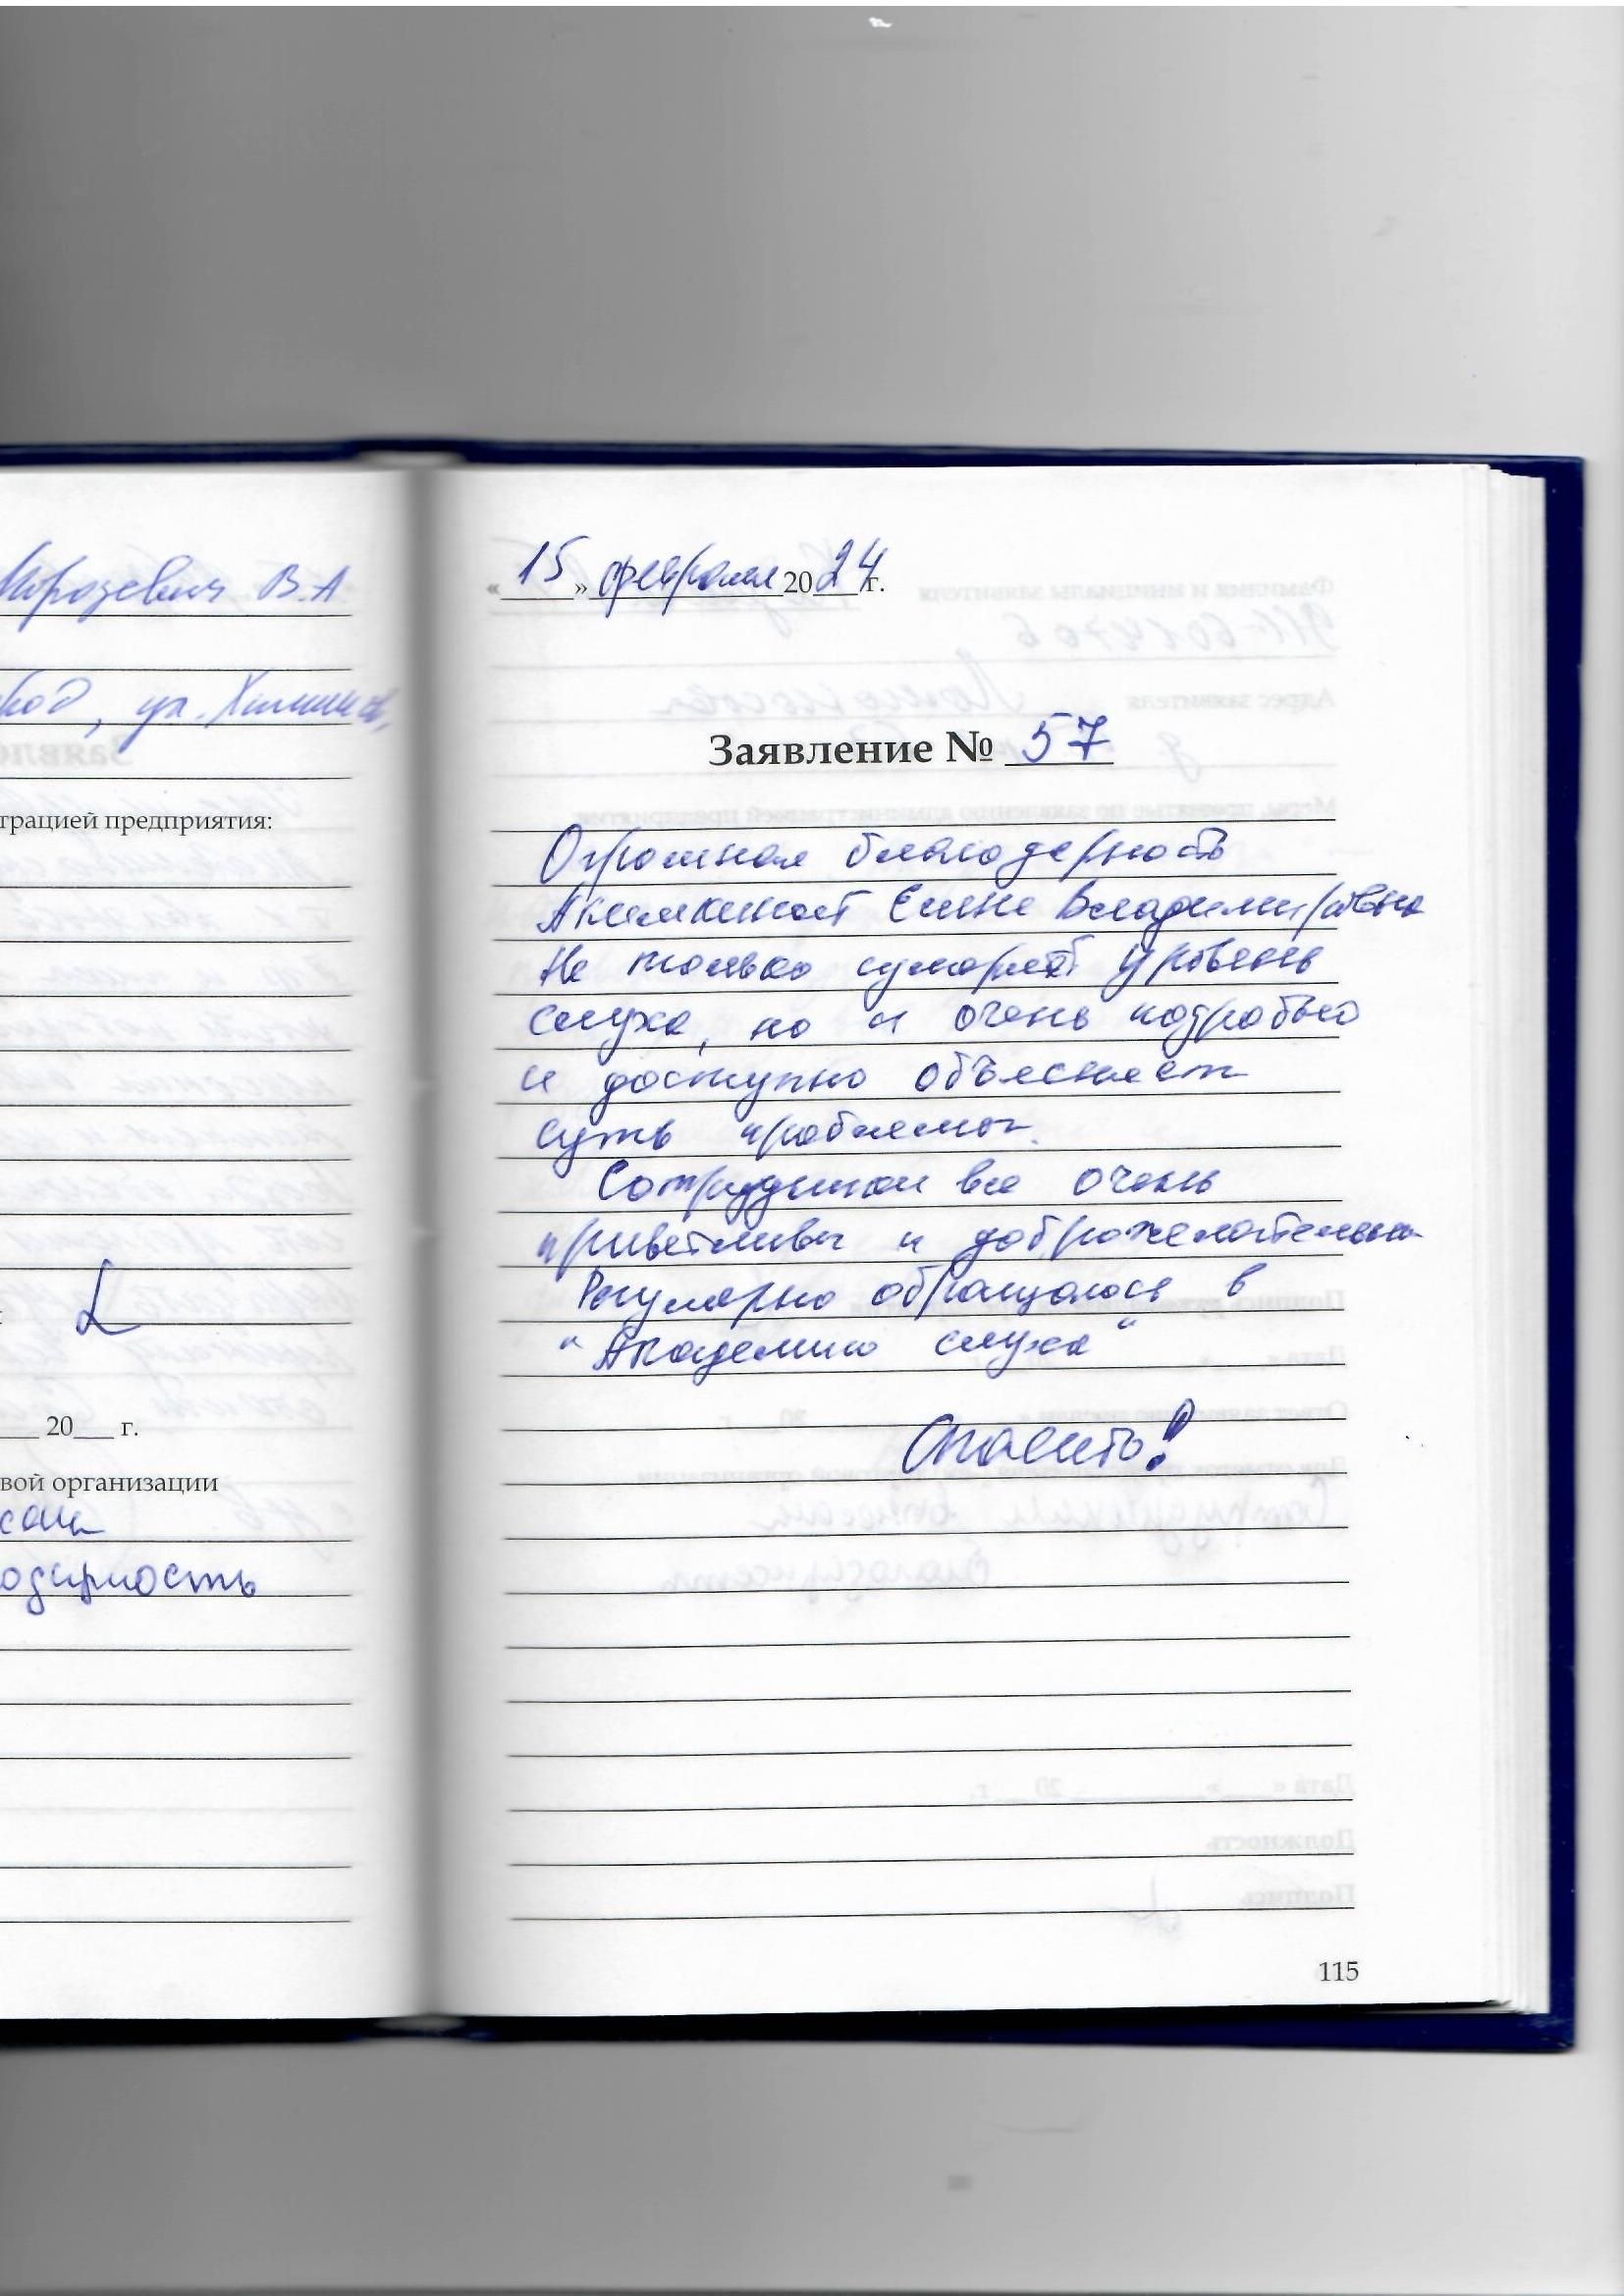 Морозевич В.А
ул. Химиков,
трацией предприятия:
20 г.
вой организации
одарность
« 15 » февраля 20 24 г.
Заявление № 57
Огромная благодарность
Елене Владимировне
Не только сумеряет уровень
слуха, но и очень подробно
и доступно объясняет
суть проблемы.
Сотрудники все очень
приветливы и доброжелательны
Регулярно обращаюсь в
"Академию слуха"
Спасибо!
115